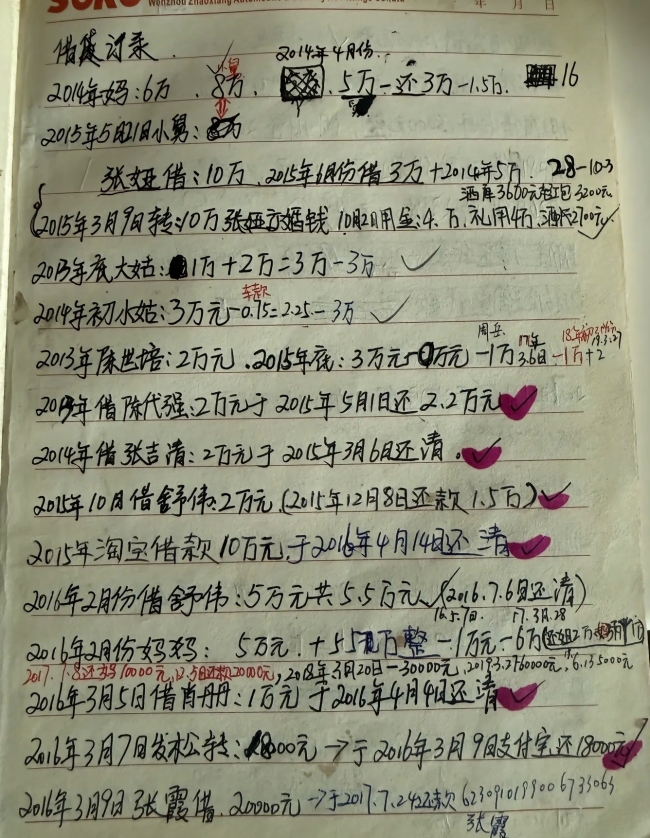 Wenzhou Zhaoxiang Automobile
年 月 日
借贷记录
2014年4月份
2014年妈:6万 8万 5万-还3万-1.5万 16
小舅
2015年5月21日小舅:
张娅借:10万、2015年6月份借3万+2014年5万 28-10=3
酒席3600元 红包3200元
2015年3月9日转:10万张娅 婚钱 10月2日用金:4万、礼用4万 酒 2700元
2013年底大姑:1万+2万=3万-3万
车款
2014年初小姑:3万元-0.75=2.25-3万
2013年陈世培:2万元、2015年底:3万元-0万元-1万 3.6日-1万+2
周岳 17年 18年 19.3.27
年借陈代强:2万元于2015年5月1日还2.2万元
2014年借张吉清:2万元于2015年3月6日还清。
2015年10月借舒伟:2万元(2015年12月8日还款1.5万)
2015年淘宝借款10万元,于2016年4月14日还清
2016年2月份借舒伟:5万元共5.5万元(2016.7.6日还清)
16.5.7日. 17.3月.28
2016年2月份妈妈:5万元+5 万整-1万元-6万(还姐2万
2017.7.8还妈10000元,12.5日还款20000元,2018年3月20日-30000元,2019.3.27 60000元,
2016年3月5日借肖丹丹:1万元于2016年4月4日还清
2016年3月7日 :18000元→于2016年3月9日支付宝还18000元
2016年3月9日张霞借 20000元→于2017.7.24还款
张霞